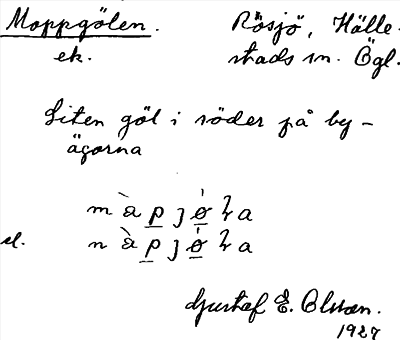 Moppgölen. Rösjö, Hälle-
ek. stads sn. Ögl.
Liten göl i söder på by-
ägorna
m à p j ö̀ ɫ a
el. n à p j ö̀ ɫ a
Gustaf E. Olsson.
1927